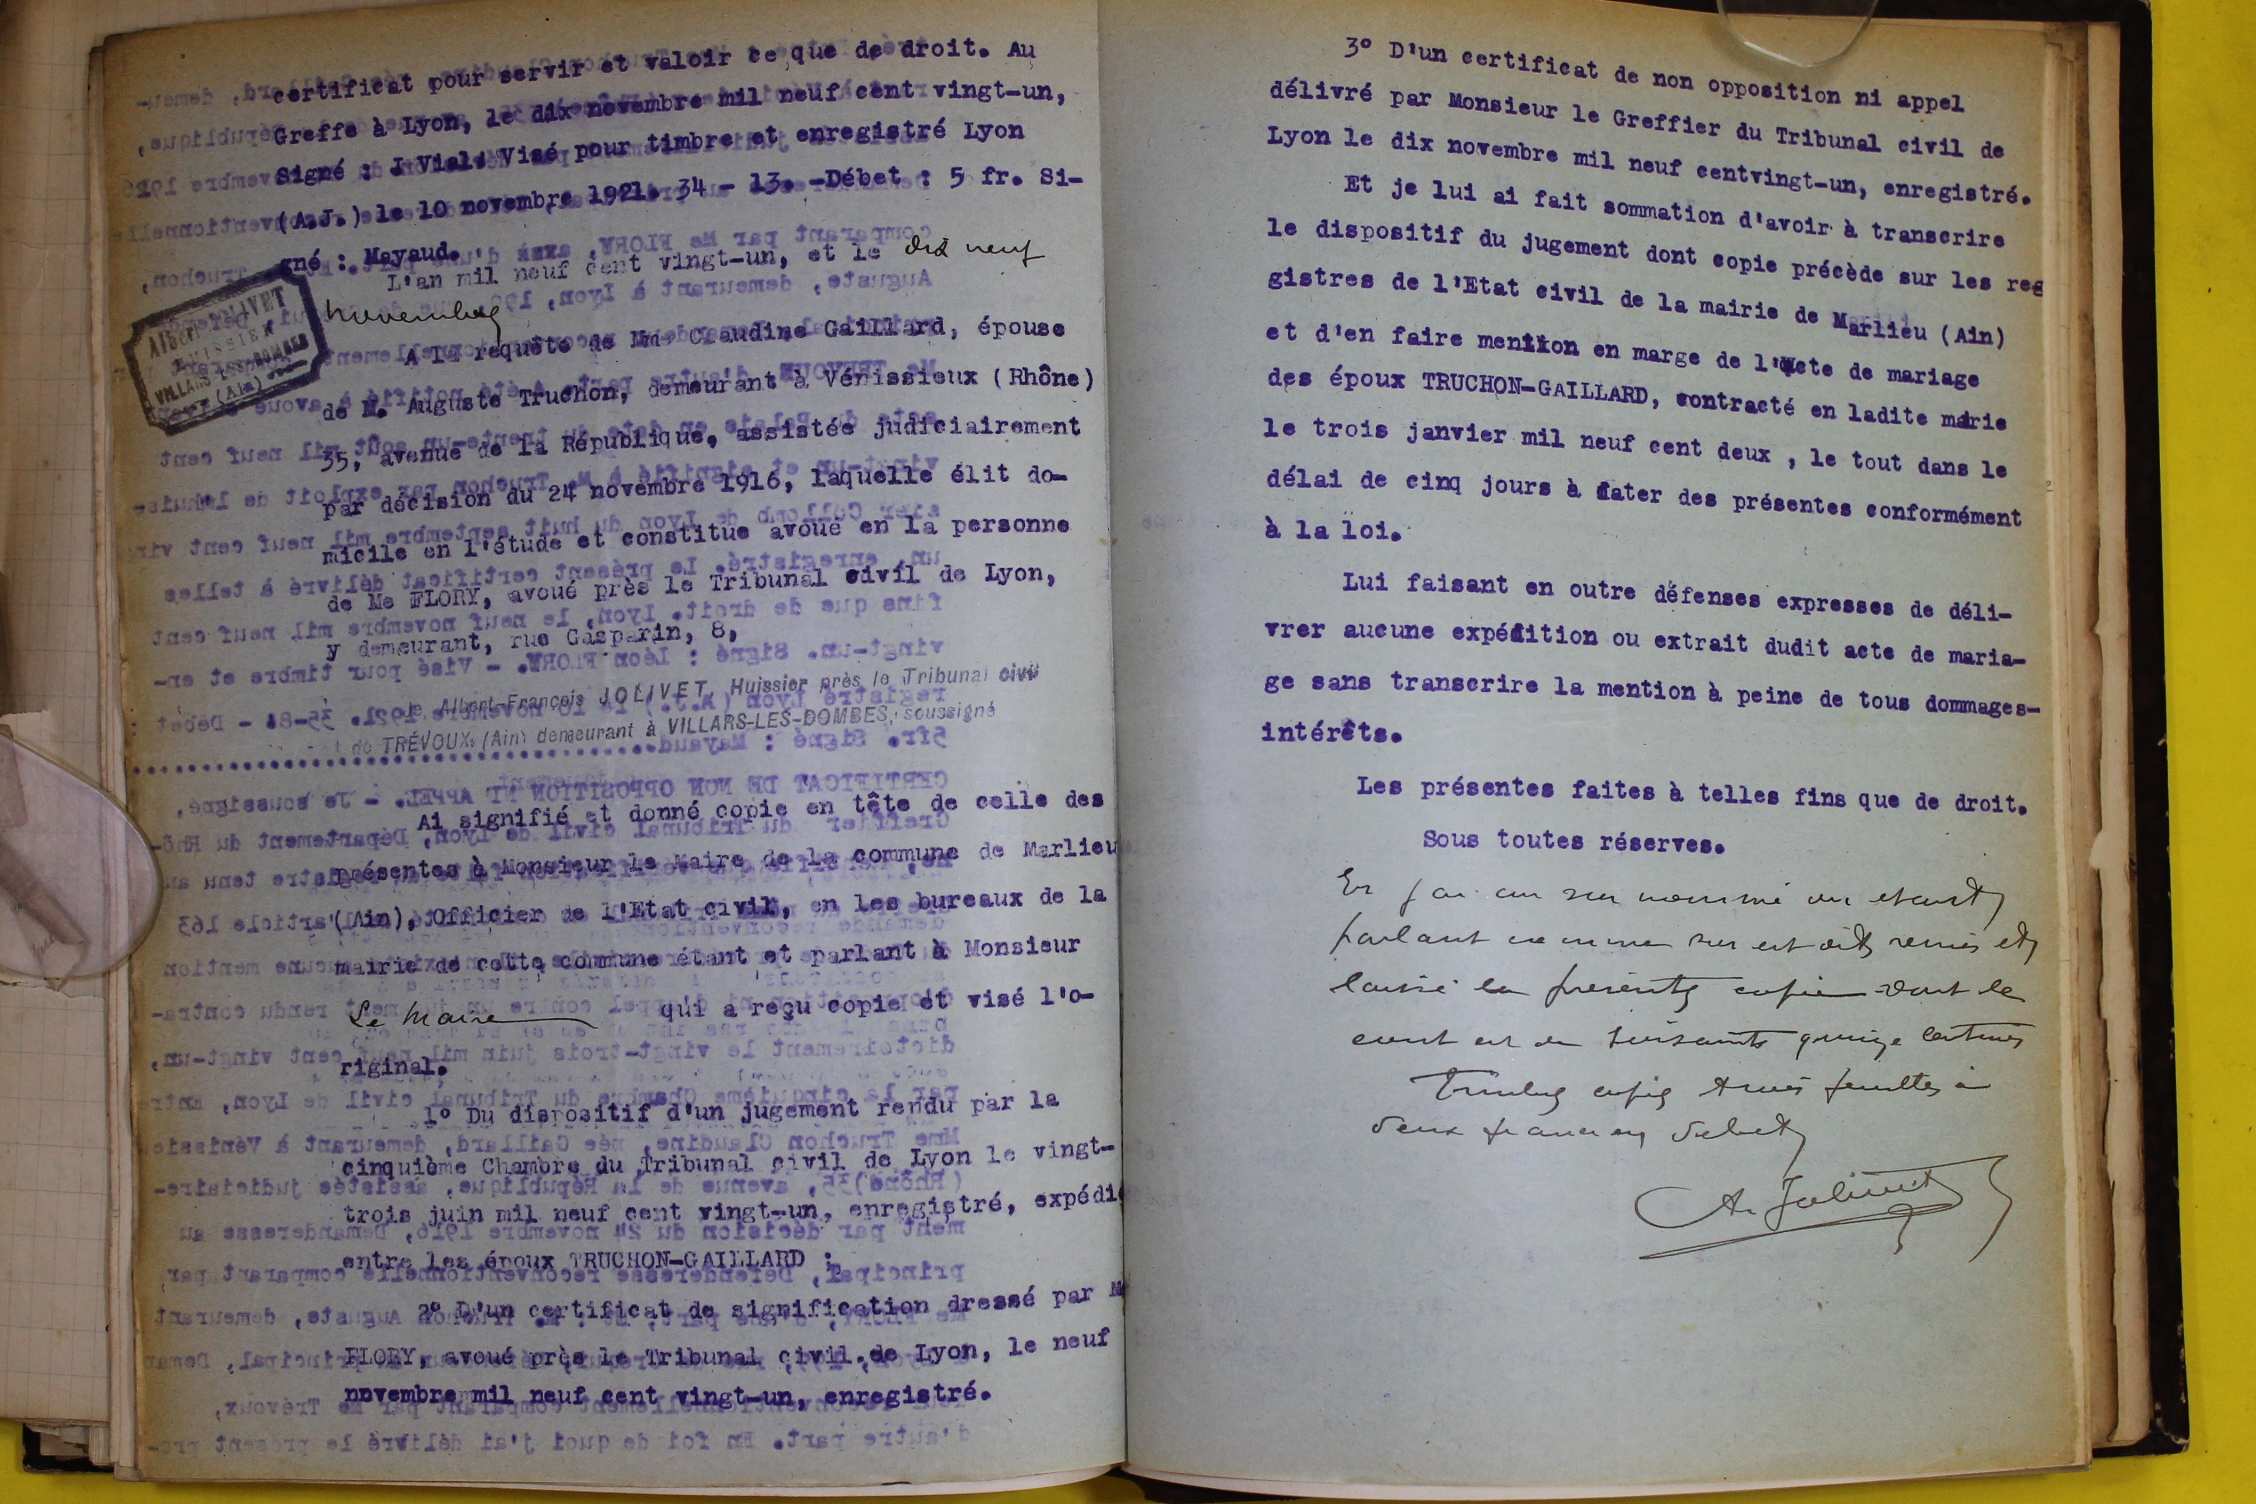 certificat pour servir et valoir ce que de droit. Au
Greffe à Lyon, le dix novembre mil neuf cent vingt-un,
Signé : J Vial. Visé pour timbre et enregistré Lyon
(A.J.) le 10 novembre 1921. 34 - 13. -Débet : 5 fr. Si-
gné : Mayaud.
L'an mil neuf cent vingt-un, et le dix neuf
novembre
A la requête de Mme Claudine Gaillard, épouse
de M. Auguste Truchon, demeurant à Vénissieux (Rhône)
35, avenue de la République, assistée judiciairement
par décision du 24 novembre 1916, laquelle élit do-
micile en l'étude et constitue avoué en la personne
de Me FLORY, avoué près le Tribunal civil de Lyon,
y demeurant, rue Gasparin, 8,
Je, Albert-François JOLIVET, Huissier près le Tribunal civil
de TRÉVOUX (Ain) demeurant à VILLARS-LES-DOMBES, soussigné
Ai signifié et donné copie en tête de celle des
présentes à Monsieur le Maire de la commune de Marlieu
(Ain), Officier de l'Etat civil, en les bureaux de la
mairie de cette commune étant et parlant à Monsieur
Le Maire qui a reçu copie et visé l'o-
riginal.
1° Du dispositif d'un jugement rendu par la
cinquième Chambre du Tribunal civil de Lyon le vingt-
trois juin mil neuf cent vingt-un, enregistré, expédié
entre les époux TRUCHON-GAILLARD ;
2° D'un certificat de signification dressé par Me
FLORY, avoué près le Tribunal civil de Lyon, le neuf
novembre mil neuf cent vingt-un, enregistré.
JOLIVET
HUISSIER
VILLARS-LES-DOMBES
(Ain)
3° D'un certificat de non opposition ni appel
délivré par Monsieur le Greffier du Tribunal civil de
Lyon le dix novembre mil neuf centvingt-un, enregistré.
Et je lui ai fait sommation d'avoir à transcrire
le dispositif du jugement dont copie précède sur les reg
gistres de l'Etat civil de la mairie de Marlieu (Ain)
et d'en faire mention en marge de l'acte de mariage
des époux TRUCHON-GAILLARD, contracté en ladite marie
le trois janvier mil neuf cent deux , le tout dans le
délai de cinq jours à dater des présentes conformément
à la loi.
Lui faisant en outre défenses expresses de déli-
vrer aucune expédition ou extrait dudit acte de maria-
ge sans transcrire la mention à peine de tous dommages-
intérêts.
Les présentes faites à telles fins que de droit.
Sous toutes réserves.
Et j'ai au sus nommé en etant
parlant comme sus est dit remis et
laissé la présente copie dont le
cout est de soixante quinze centimes
Timbre copie trois feuilles à
deux francs en debet
A. Jolivet